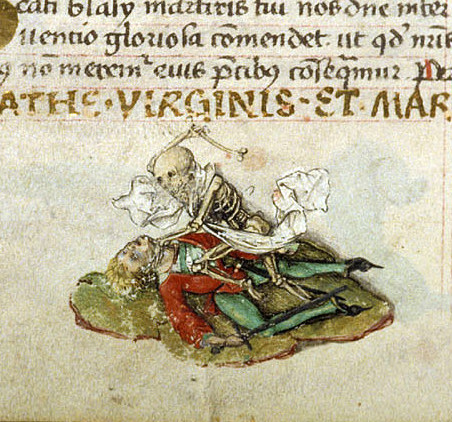 cati blasij martiris tui nos dne inter
uentio gloriosa cōmendet. ut qd' nris
nō merem' eius p̄cibus cōseq̄mur. Per
ATHE · VIRGINIS · ET · MAR